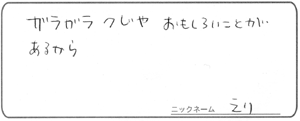 ガラガラ クじや おもしろいことが
あるから
ニックネーム えり